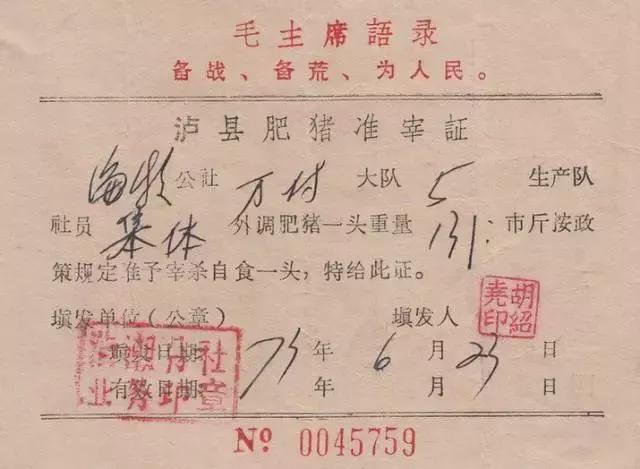 毛主席語录
备战、备荒、为人民。
泸县肥猪准宰証
海潮公社万村大队5生产队
社员集体外调肥猪一头重量131市斤按政
策规定准予宰杀自食一头，特给此证。
填发单位(公章) 填发人 胡紹堯印
填发日期 75年6月23日
有效日期 年 月 日
业务印章
Nº 0045759